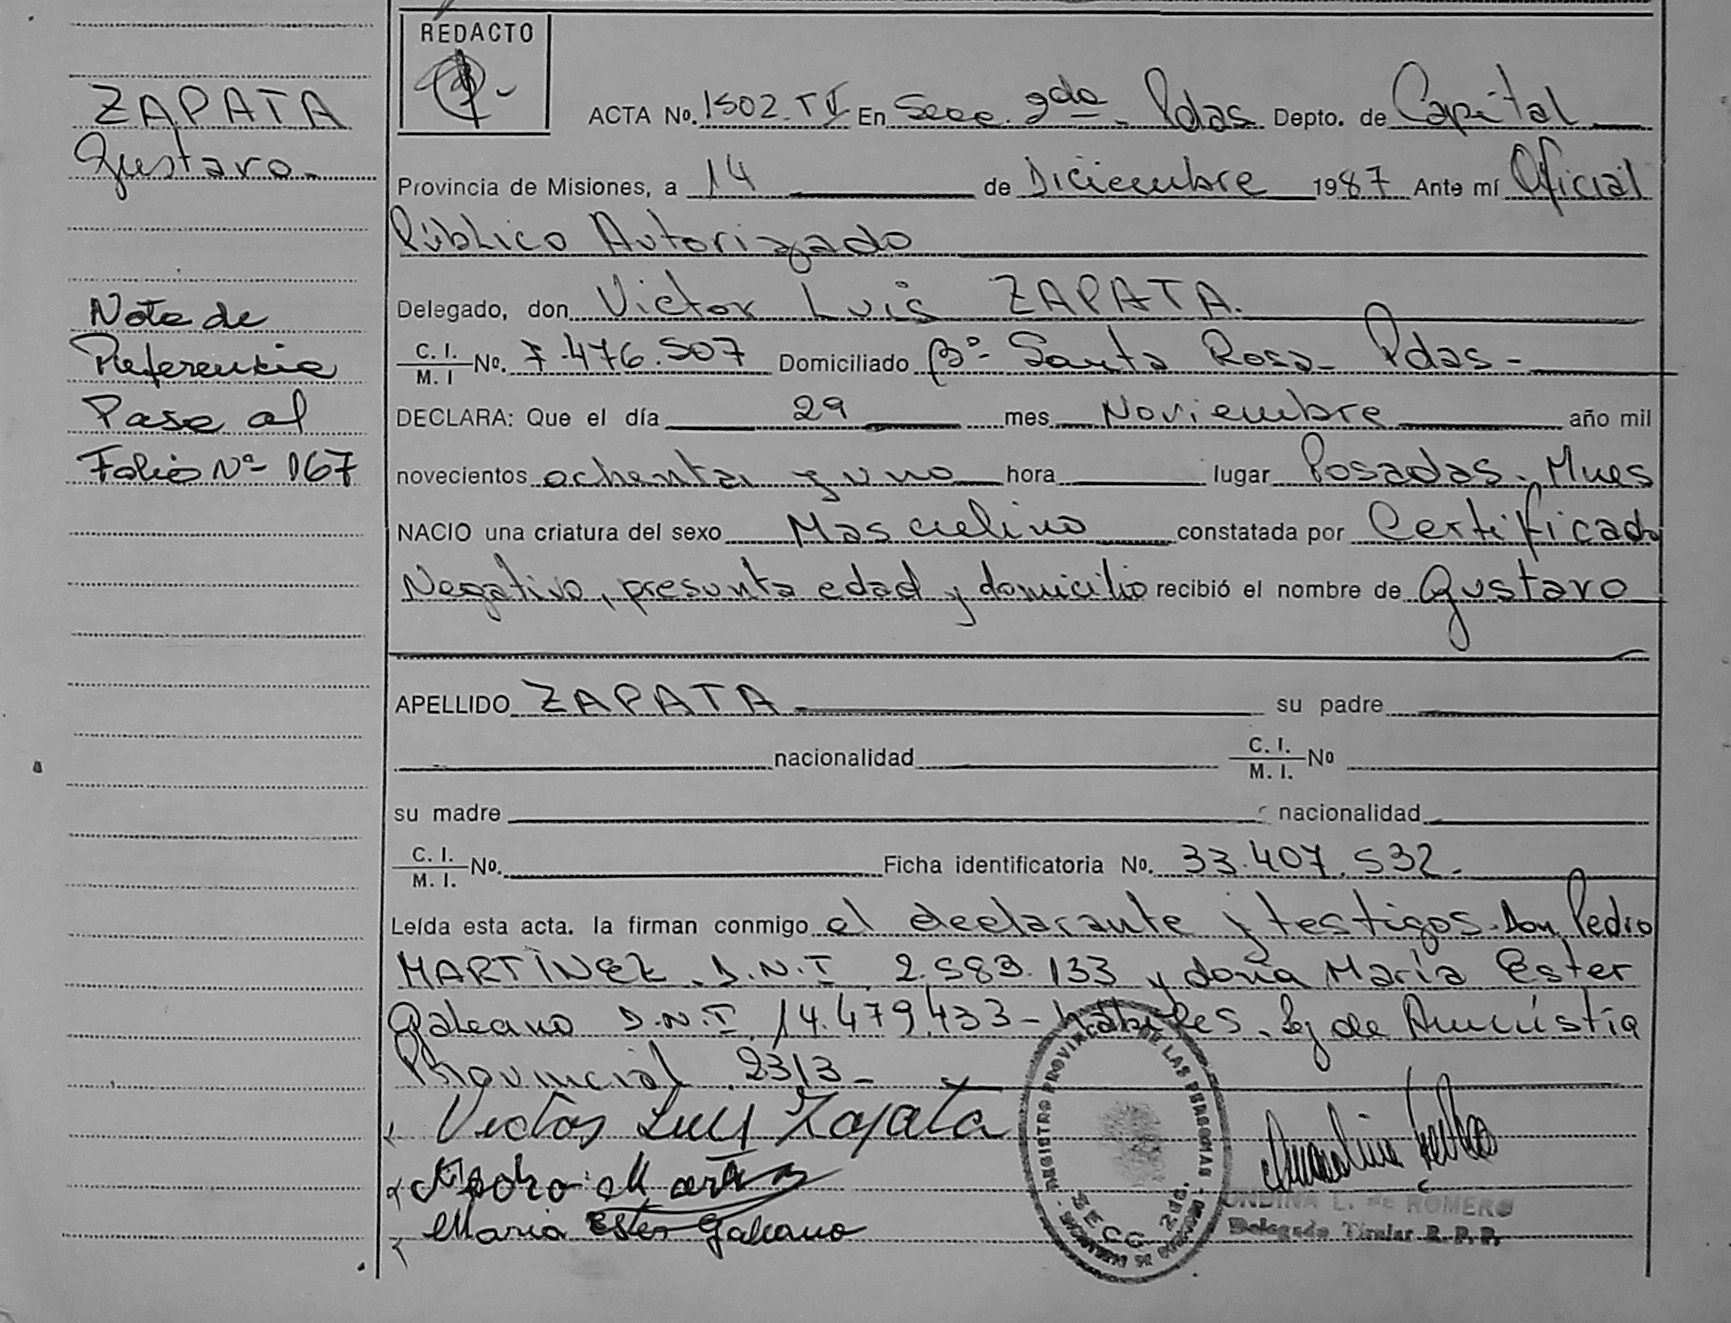 ZAPATA
Gustavo.
Nota de
Referencia
Pase al
Folio Nº 167
REDACTO
ACTA No. 1502. TI En Secc. 2da. Pdas Depto. de Capital
Provincia de Misiones, a 14 de Diciembre 1987 Ante mí Oficial
Público Autorizado
Delegado, don Victor Luis ZAPATA.
C. I. / M. I No. 7.476.507 Domiciliado Bº Santa Rosa - Pdas -
DECLARA: Que el día 29 mes Noviembre año mil
novecientos ochenta y uno hora lugar Posadas. Mnes
NACIO una criatura del sexo Masculino constatada por Certificado
Negativo, presunta edad y domicilio recibió el nombre de Gustavo
APELLIDO ZAPATA - su padre
nacionalidad C. I. / M. I. No
su madre nacionalidad
C. I. / M. I. No. Ficha identificatoria No. 33.407.532.
Leída esta acta. la firman conmigo el declarante y testigos. Don Pedro
MARTÍNEZ. D.N.I 2.583.133 y doña María Ester
Galeano D.N.I 14.479.433 - hábiles. Ley de Amnistía
Provincial 2313 -
Victor Luis Zapata
Pedro Martinez
Maria Ester Galeano
REGISTRO PROVINCIAL DE LAS PERSONAS
SECC. 2da.
ONDINA L. de ROMERO
Delegado Titular R. P. P.